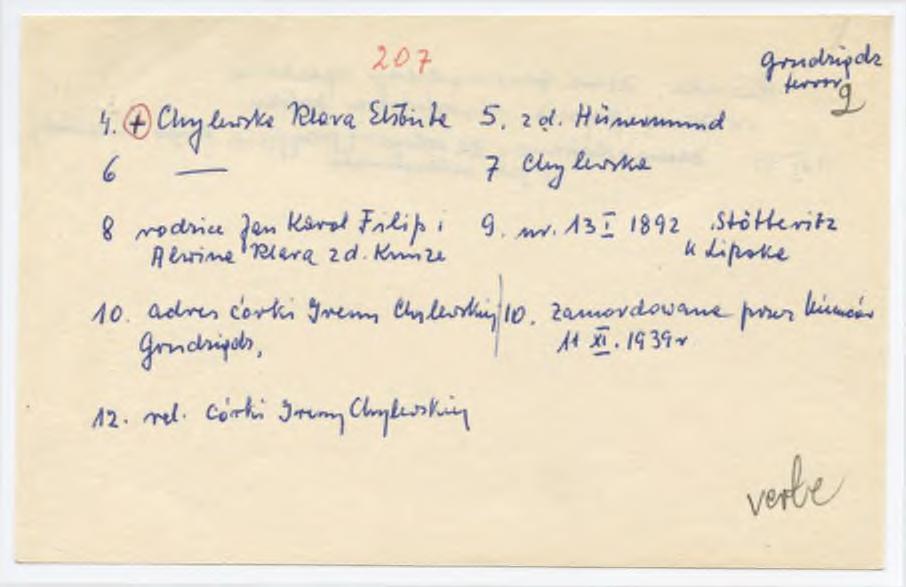 207
Grudziądz
terror
9
4. + Chylewska Klara Elżbieta 5. z d. Hünermund
6 — 7 Chylewska
8 rodzice Jan Karol Filip i 9. ur. 13 I 1892 Stötteritz
Alwina Klara z d. Kunze k Lipska
10. adres córki Ireny Chylewskiej 10. zamordowana przez Niemców
Grudziądz, 11 XI. 1939 r
12. rel. córki Ireny Chylewskiej
verte